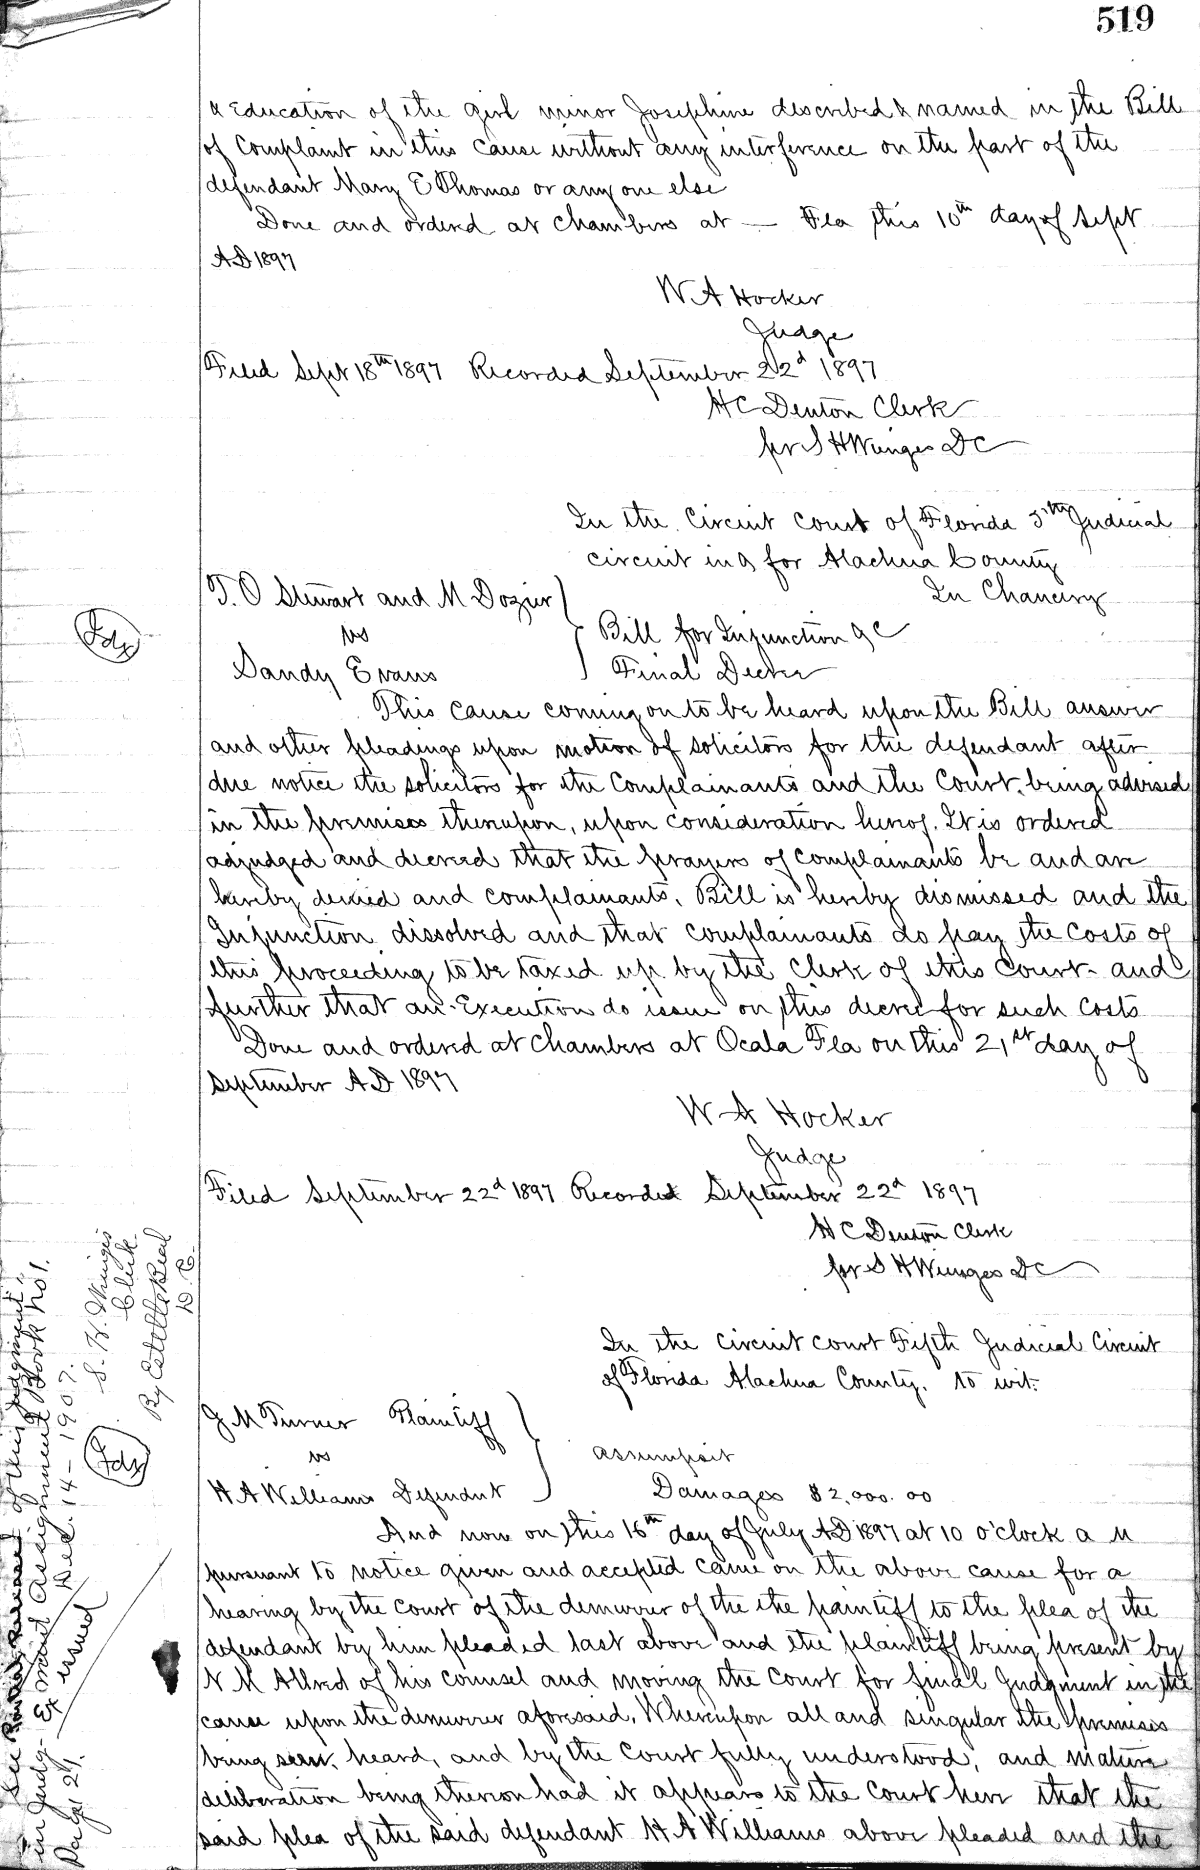 519
& Education of the girl minor Josephine described & named in the Bill
of Complaint in this cause without any interference on the part of the
defendant Mary E Thomas or any one else
Done and ordered at Chambers at — Fla this 10th day of Sept
AD 1897
W A Hocker
Judge
Filed Sept 18th 1897 Recorded September 22d 1897
H C Denton Clerk
pr S H Wienges DC
In the Circuit Court of Florida 5th Judicial
circuit in & for Alachua County
In Chancery
T. O Stewart and M Dozier
vs
Sandy Evans
Bill for Injunction &C
Final Decree
Idx
This cause coming on to be heard upon the Bill answer
and other pleadings upon motion of solicitors for the defendant after
due notice the solicitors for the Complainants and the Court, being advised
in the premises thereupon, upon consideration hereof. It is ordered
adjudged and decreed that the prayers of complainants be and are
hereby denied and complainants, Bill is hereby dismissed and the
Injunction dissolved and that complainants do pay the costs of
this proceeding to be taxed up by the Clerk of this Court and
further that an Execution do issue on this decree for such costs
Done and ordered at chambers at Ocala Fla on this 21st day of
September AD 1897
W A Hocker
Judge
Filed September 22d 1897 Recorded September 22d 1897
H C Denton Clerk
pr S H Wienges DC
In the Circuit court Fifth Judicial Circuit
of Florida Alachua County. to wit.
J M Turner Plaintiff
vs
H A Williams Defendant
assumpsit
Damages $2,000.00
Idx
And now on this 16th day of July AD 1897 at 10 o'clock a M
pursuant to notice given and accepted came on the above cause for a
hearing by the court of the demurrer of the the paintiff to the plea of the
defendant by him pleaded last above and the plaintiff being present by
N M Allred of his counsel and moving the Court for final Judgment in the
cause upon the demurrer aforesaid. Whereupon all and singular the premises
being seen, heard, and by the Court fully understood, and mature
deliberation being thereon had it appears to the Court here that the
said plea of the said defendant H A Williams above pleaded and the
of this Judgment,
in Judg- ment Assignment Book No 1.
Page 29. Dec. 14 - 1907.
S. H. Wienges
Clerk
By Estelle Beal
D. C.
Ex issued